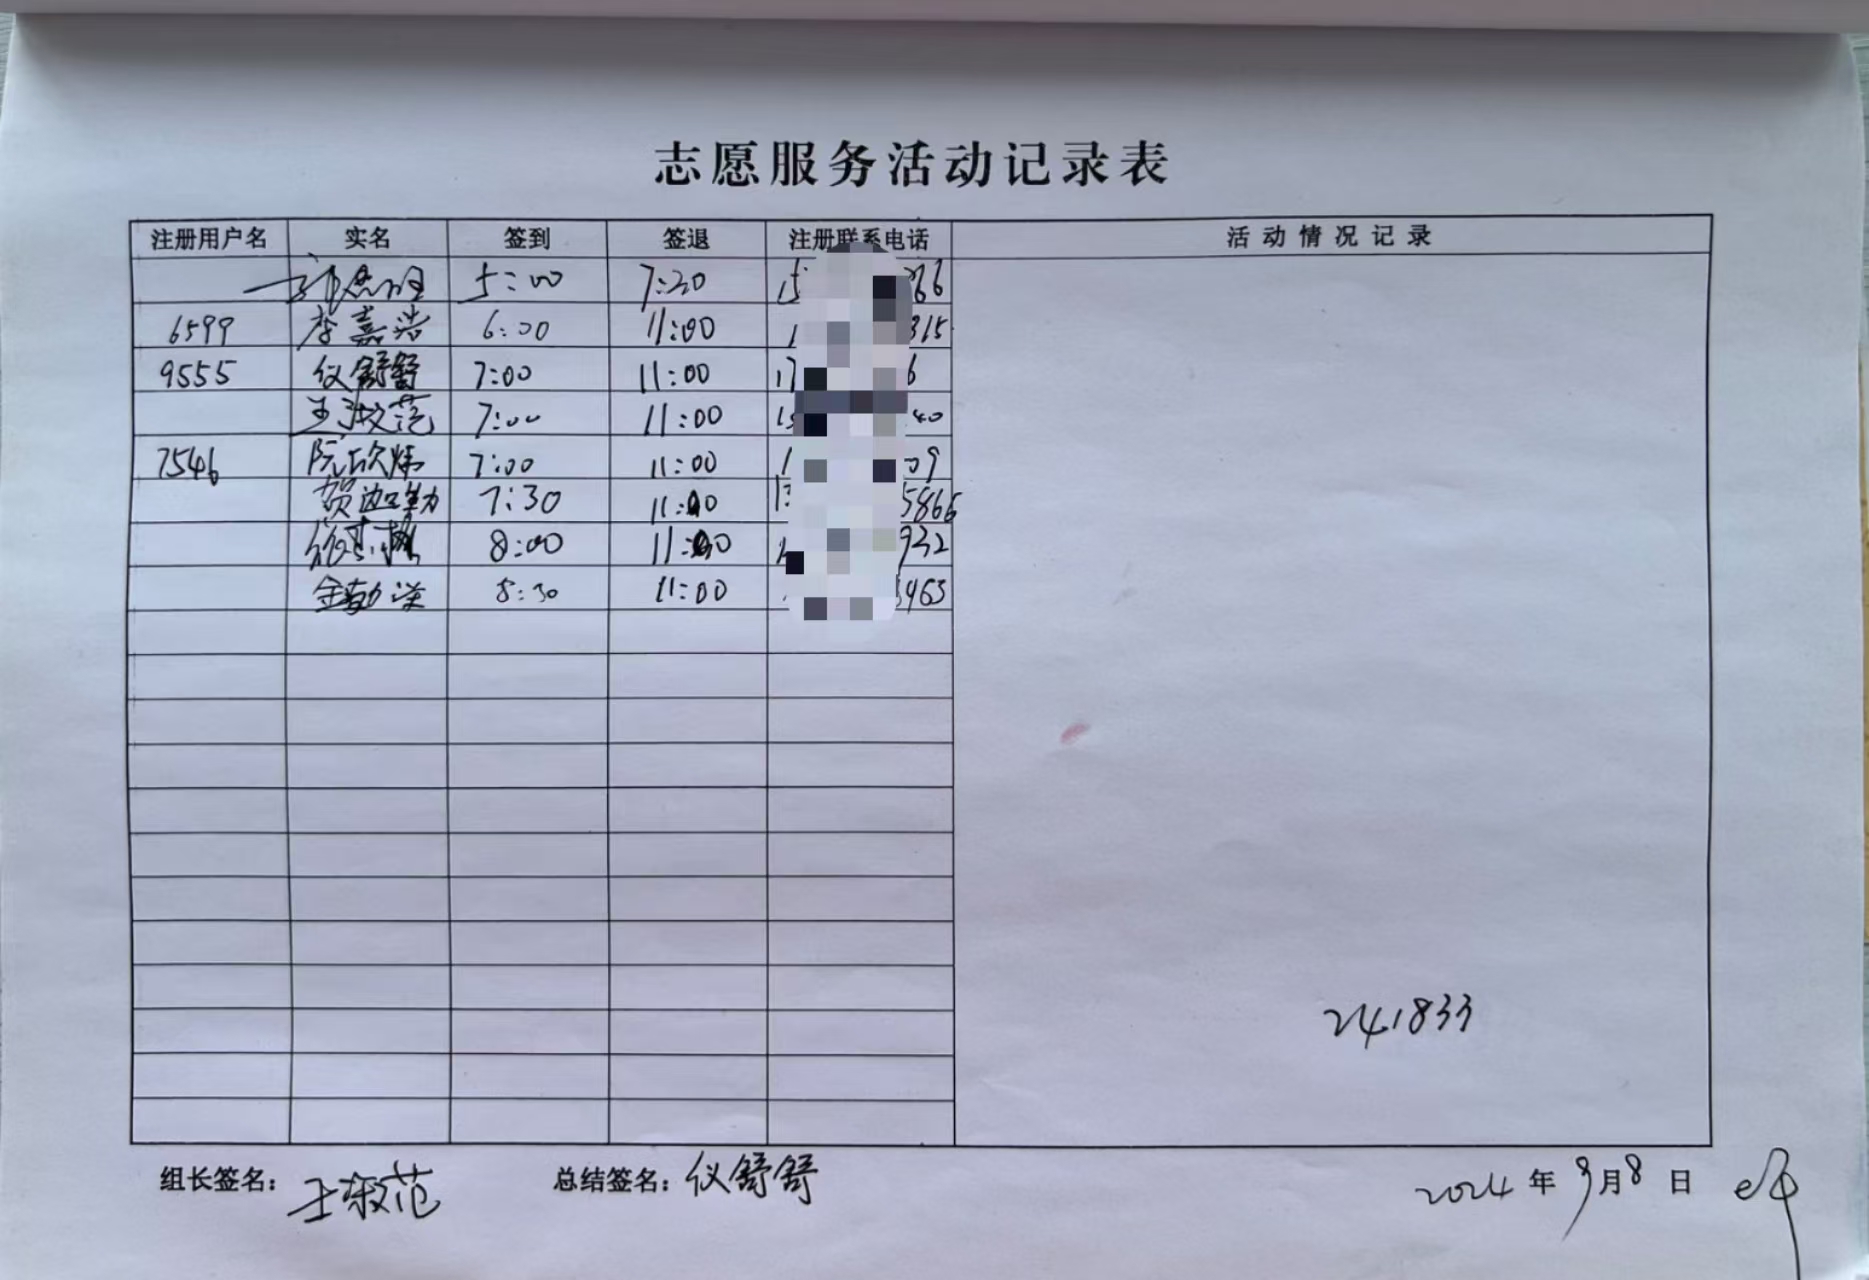 志愿服务活动记录表
注册用户名 实名 签到 签退 注册联系电话 活动情况记录
5:00 7:20 15 66
6599 李嘉浩 6:00 11:00 1 315
9555 仪舒舒 7:00 11:00 17 6
王淑范 7:00 11:00 15 40
7546 阮欣炜 7:00 11:00 1 09
贺迦勒 7:30 11:00 13 5866
8:00 11:00 932
金勤 8:30 11:00 3463
241833
组长签名: 王淑范 总结签名: 仪舒舒 2024年9月8日